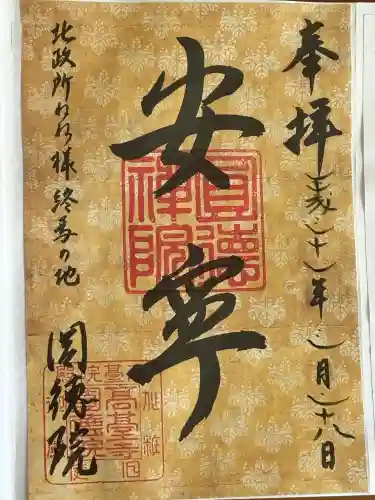 奉拝
年 月十八日
安寧
圓德
禪院
北政所ねね様 終焉の地
圓徳院
高臺寺